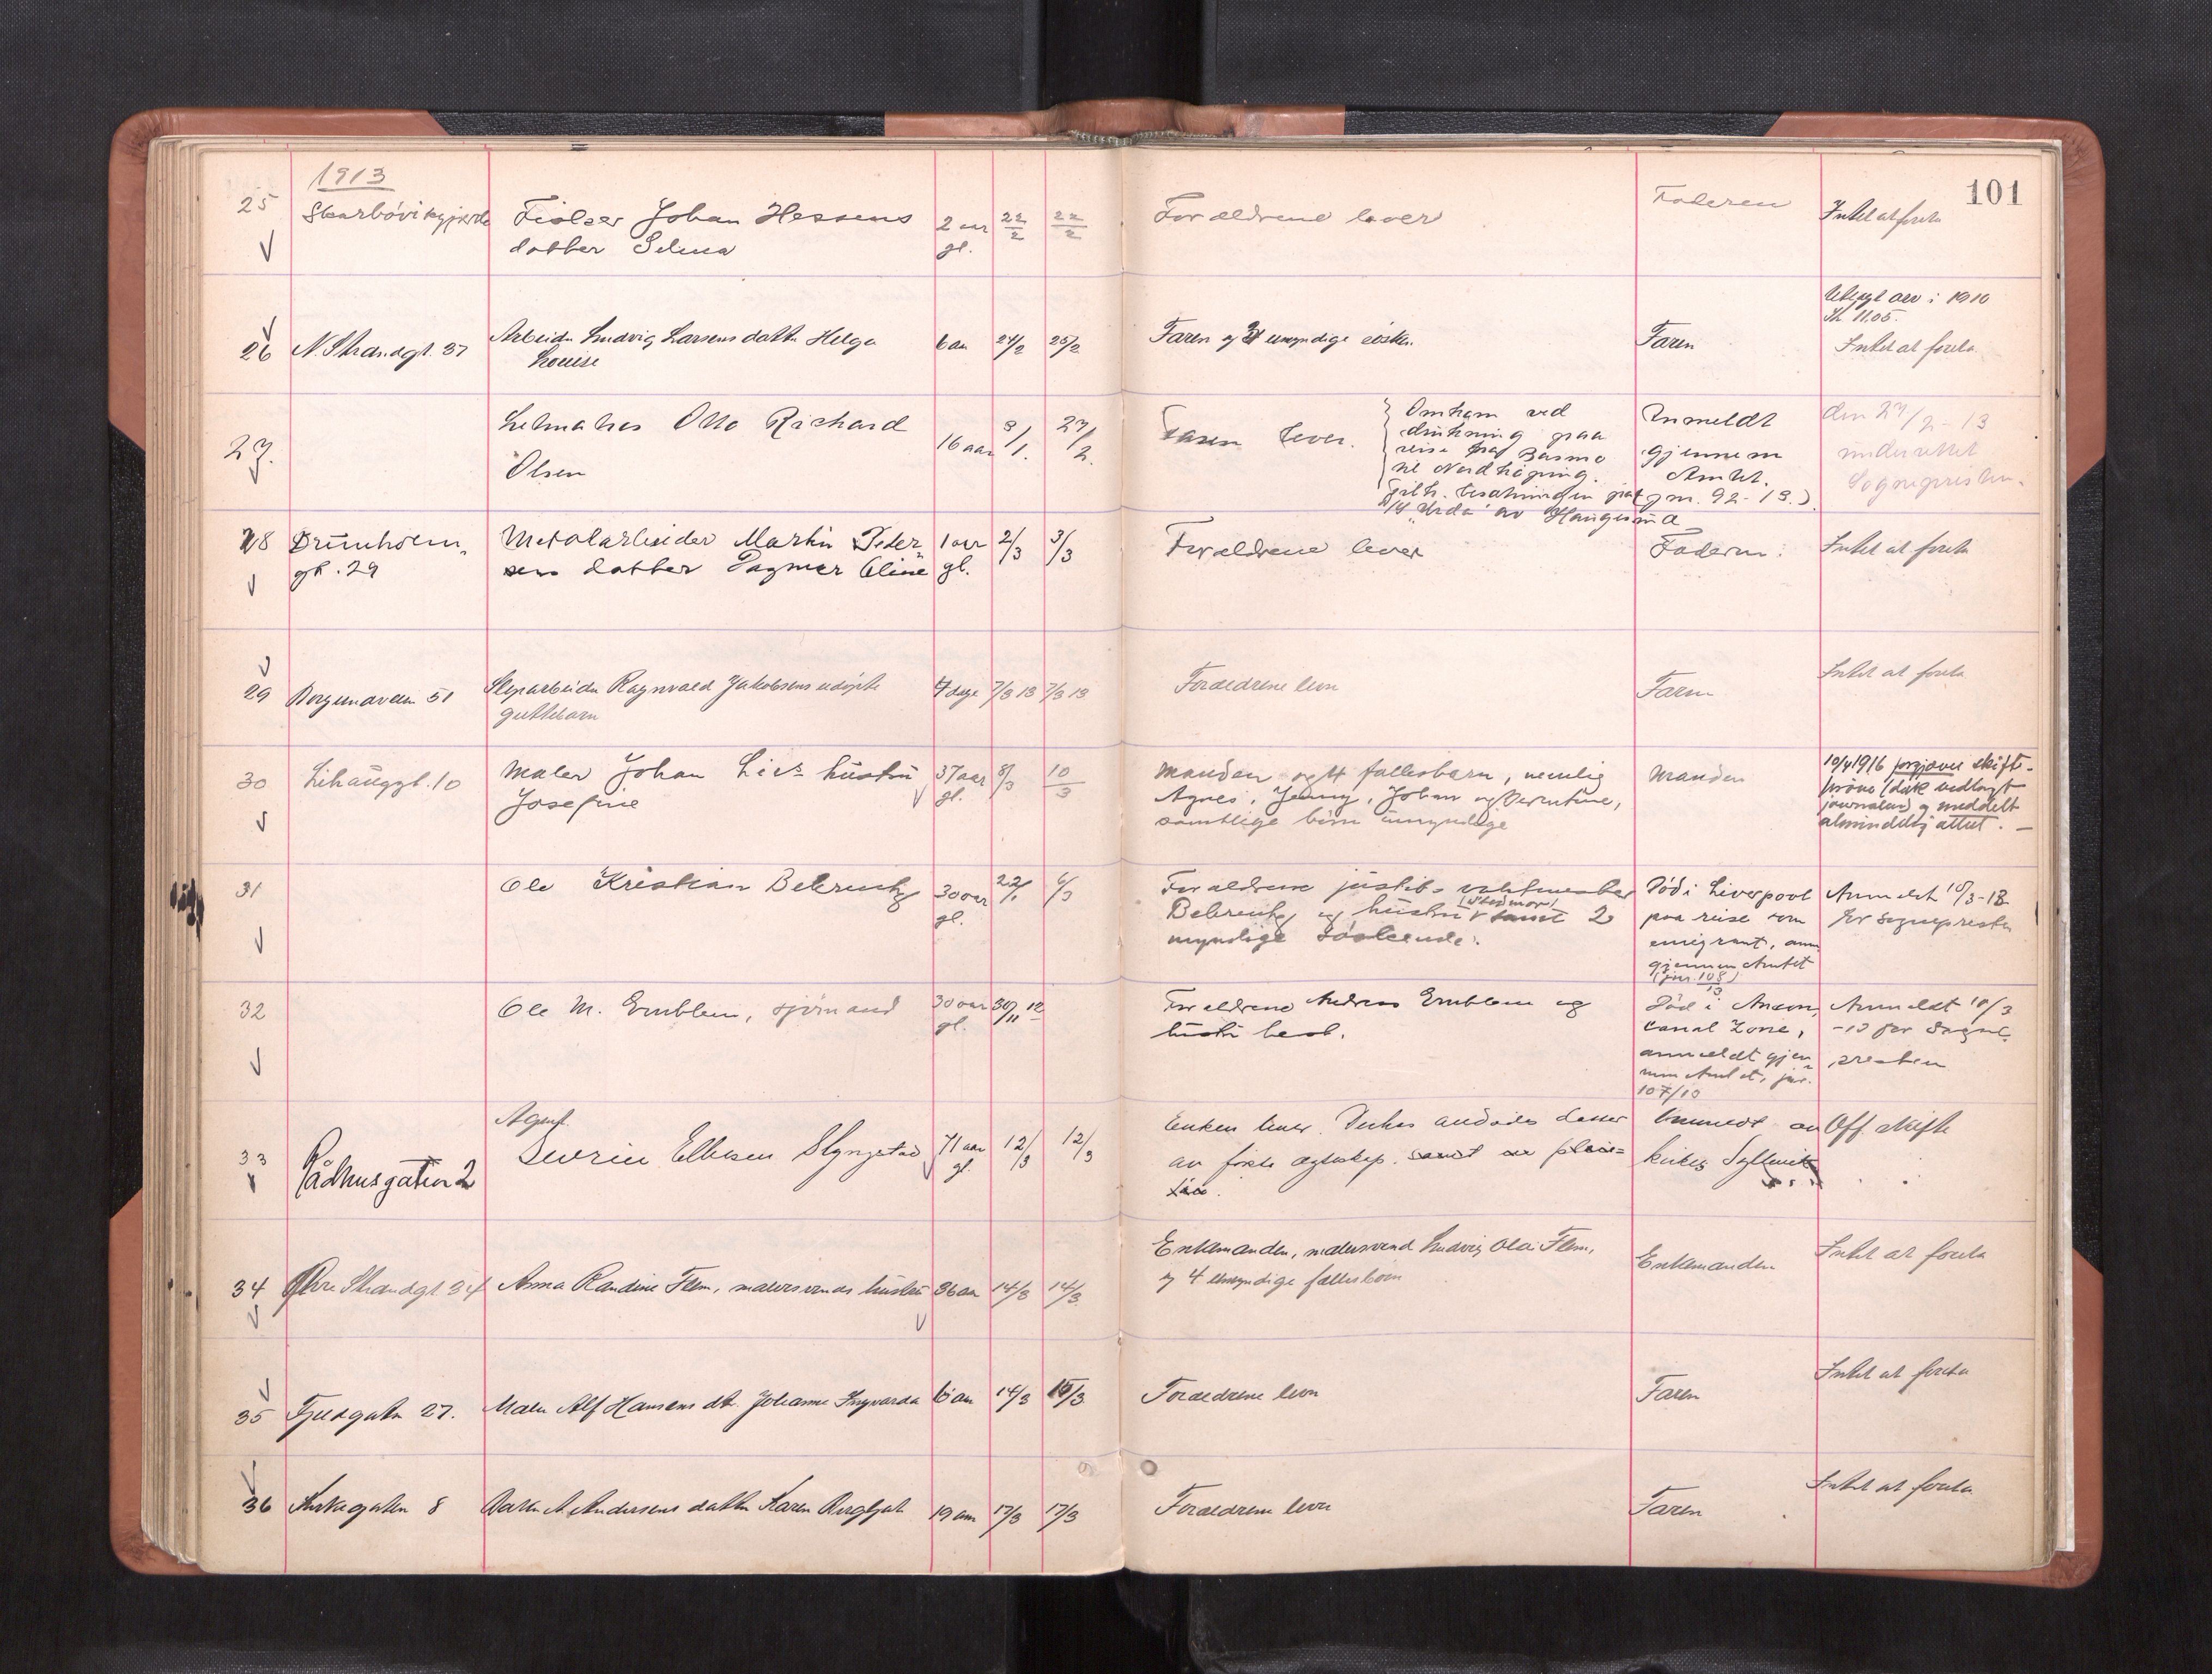 101
1913
25 Skarbövikgjærde Fisker Johan Hessens 2 aar 22/2 22/2 Forældrene lever Faderen Intet at foreta
datter Selma gl.
Utlagt arv i 1910
26 N. Strandgt. 37 Arbeider Ludvig Larsens datter Helga 6 aar 24/2 25/2 Faren og umyndige søsken. Faren Intet at foreta.
Louise
27. Letmatros Otto Richard 16 aar 8/1. 27/2. Faren lever. Omkom ved Anmeldt den 27/2-13
Olsen drukning paa gjennem underrettet
reise fra Basmo Amtet. Sognepræsten.
til Nordköping.
tilh. besætningen paa jnr. 92-13.)
"Urda" av Haugesund
28 Brunholm- Metalarbeider Martin Peder- 1 aar 2/3 3/3 Forældrene lever Faderen. Intet at foreta
gt. 29 sens datter Dagmar Oline gl.
29 Borgundveien 51 Sliparbeider Ragnvald Jakobsens udøpte 7 dage 7/3 13 7/3 13 Forældrene lever Faren Intet at foreta
guttebarn
30 Lihauggt. 10 Maler Johan Lies hustru 37 aar 8/3 10/3 Manden og 4 fællesbarn, nemlig Manden 10/4 1916 forgjæves skifte-
Josefine gl. Agnes, Jenny, Johan og
samtlige børn umyndige
journalen) og meddelt
almindelig attest. —
31 Ole Kristian Behrentz 30 aar 22/1 6/3 Forældrene justits- vaktmester Död i Liverpool Anmeldt 10/3-13
gl. Behrentz og hustru (stedmor) samt 2 paa reise som for sogneprest
myndige søskende. emigrant, anm.
gjennem Amtet
(jnr. 108/13)
32 Ole M. Emblem, sjömand 30 aar 30/11 12 Forældrene Andreas Emblem og Död i Ancon, Anmeldt 10/3
gl. hustru Canal Zone, -13 for Sogne-
anmeldt gjen- presten
nem Amtet, jnr.
107/13
33 Rådhusgaten 2 Agent
Severin Ellesen Slyngstad 71 aar 12/3 12/3 Enken lever. Off. skifte
gl. av förste ægteskap.
34 Övre Strandgt. 34 Anna Randine Flem, malersvends hustru 36 aar 14/3 14/3 Enkemanden, malersvend Ludvig Olai Flem, Enkemanden Intet at foreta
og 4 umyndige fællesbørn
35 Tjeldgaten 27. Maler Alf Hansens dtr. Johanne Ingvarda 6 aar 14/3 15/3 Forældrene lever Faren Intet at foreta
36 Kirkegaten 8 Andersens datter Karen Bergljot 19 aar 17/3 17/3 Forældrene lever Faren Intet at foreta